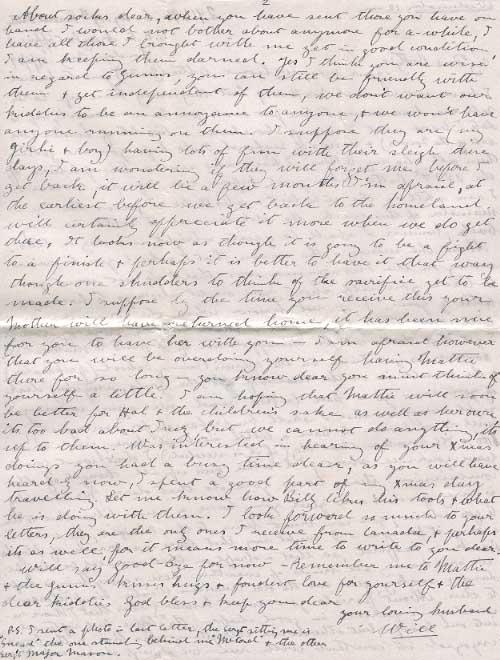 2
About socks dear, when you have sent those you have on
hand I would not bother about anymore for a while, I
have all those I brought with me yet in good condition
I am keeping them darned. Yes I think you are wise
in regard to Gunns, you can still be friendly with
them & yet independent of them, we don't want our
kiddies to be an annoyance to anyone, & we won't have
anyone running on them. I suppose they are (my
girlie & boy) having lots of fun with their sleigh these
days, I am wondering if they will forget me before I
get back, it will be a few months I'm afraid, at
the earliest before we get back to the homeland.
will certainly appreciate it more when we do get
there. It looks now as though it is going to be a fight
to a finish & perhaps it is better to have it that way
though one shudders to think of the sacrifice yet to be
made. I suppose by the time you receive this your
Mother will have returned home, it has been nice
for you to have her with you — I am afraid however
that you will be overdoing yourself having Mattie
there for so long — you know dear you must think of
yourself a little. I am hoping that Mattie will soon
be better for Hal & the children's sake as well as her own
its too bad about but we cannot do anything, its
up to them. Was interested in hearing of your Xmas
doings you had a busy time dear, as you will have
heard by now, I spent a good part of my Xmas day
travelling. Let me know how Billy likes his tools & what
he is doing with them. I look forward so much to your
letters, they are the only ones I receive from Canada, & perhaps
its as well for it means more time to write to you dear
Will say good-bye for now — Remember me to Mattie
& the Gunns. Kisses hugs & fondest love for yourself & the
dear kiddies God bless & keep you dear
your loving husband
Will
P.S. I sent a photo in last letter, the sergt sitting me is
"Snead" the one standing behind me & the other
sergt. Major Mason.